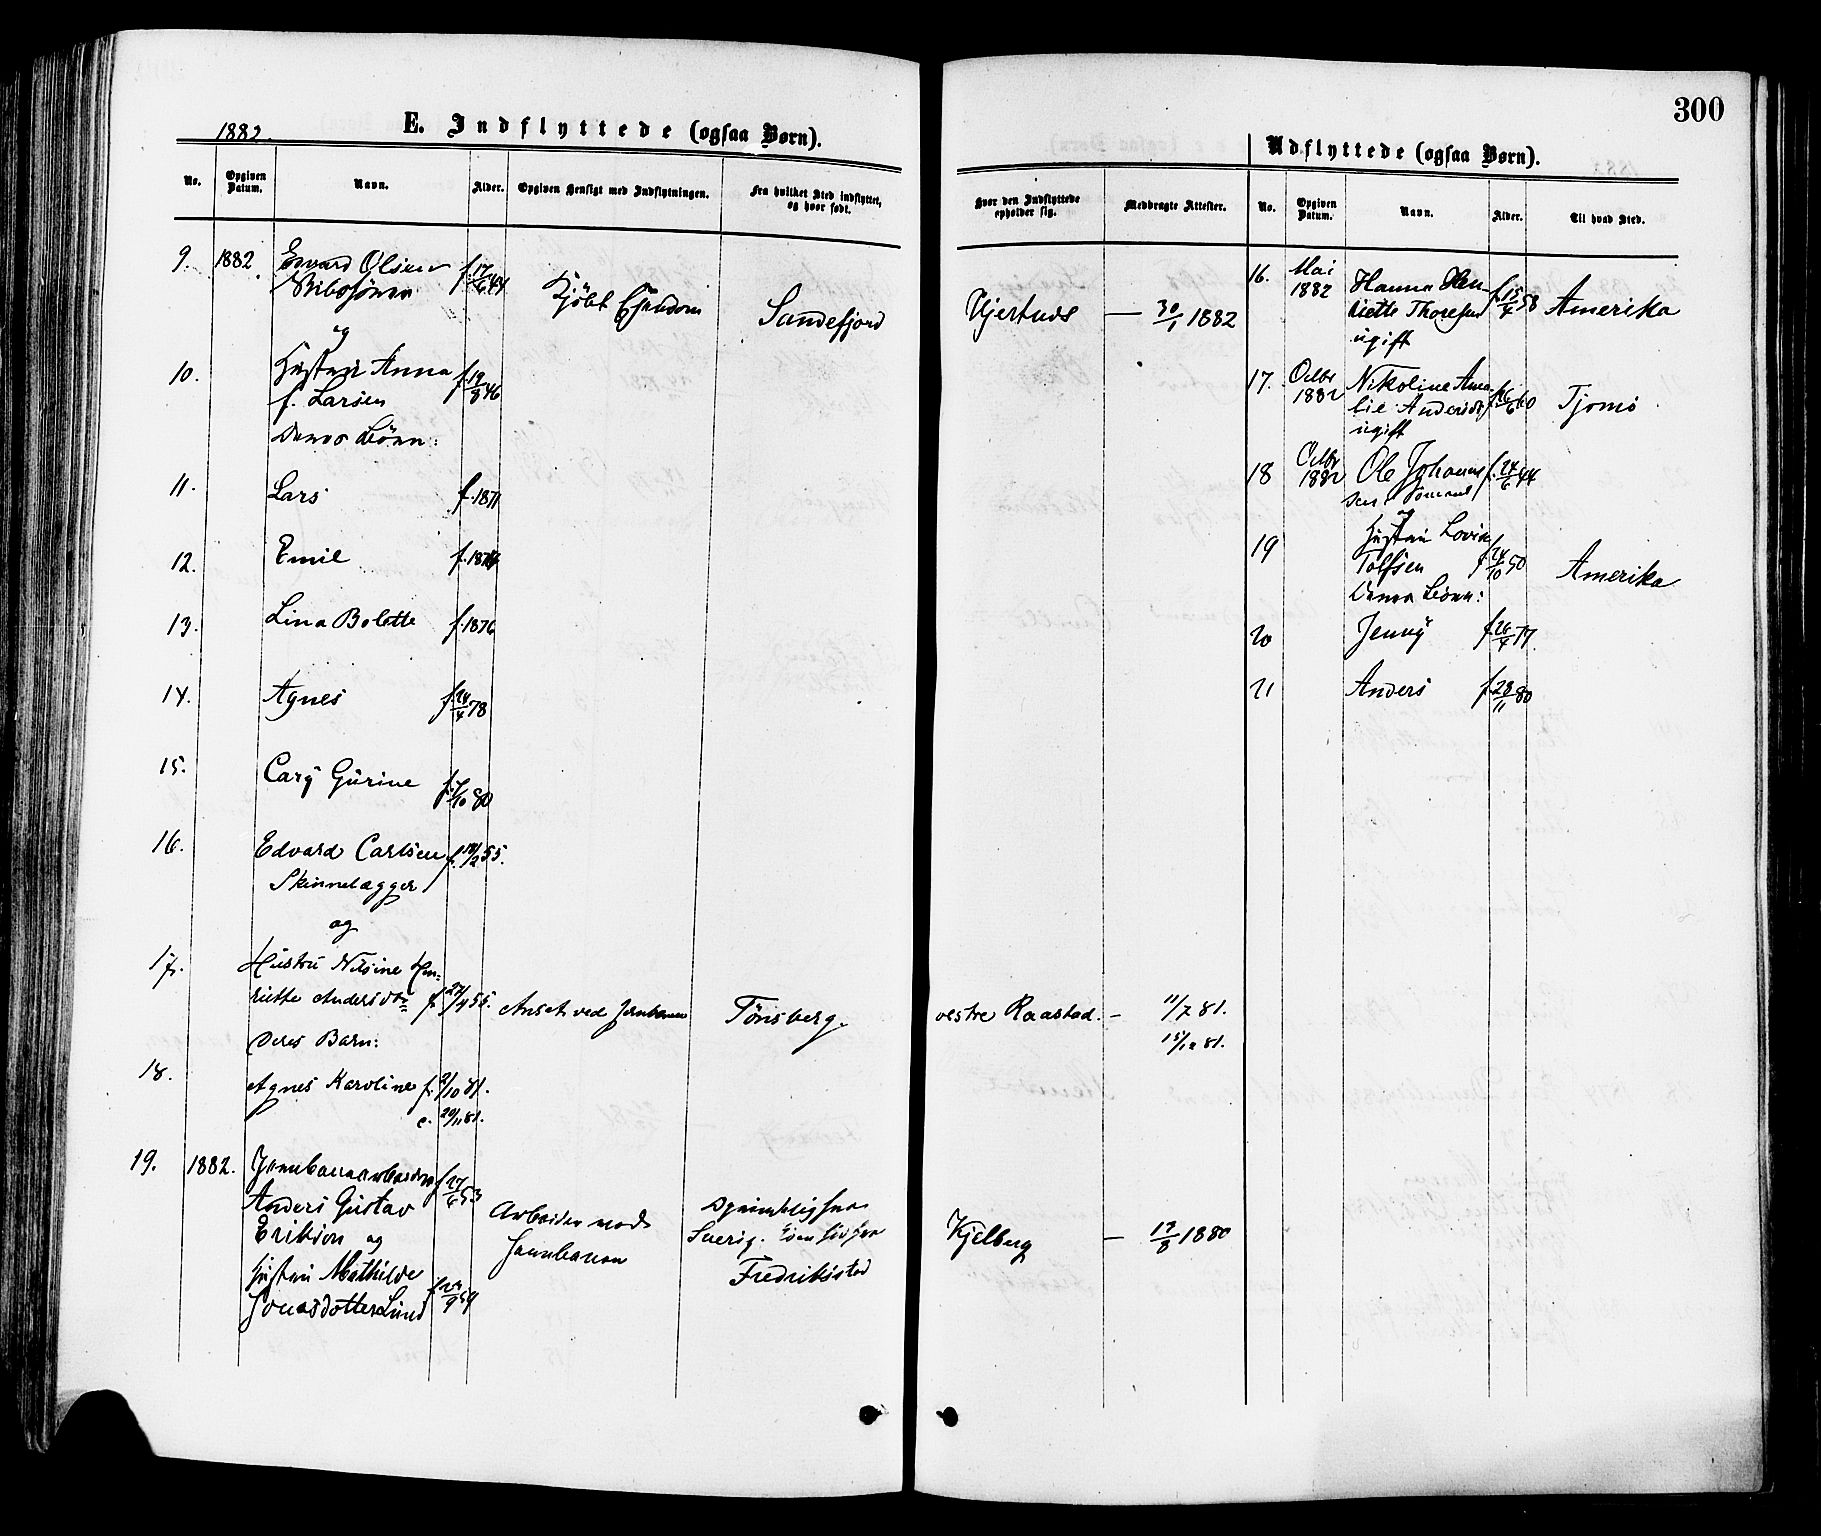 300
1882.
E. Indflyttede (ogsaa Børn).
No. Opgiven Datum. Navn. Alder. Opgiven Hensigt med Indflytningen. Fra hvilket Sted indflyttet, og hvor født.
Hvor den Indflyttede opholder sig. Medbragte Attester.
9. 1882. Edvard Olsen f. 17/6 44
Kjöbt Ejendom Sandefjord — 30/1 1882
og
10. Hustru Anna f. 19/8 46
f. Larsen
Deres Börn:
11. Lars f. 1871
12. Emil f. 1874
13. Lina Bolette f. 1876
14. Agnes f. 24/4 78
15. Cary Gurine f. 7/10 80
16. Edvard Carlsen f. 18/2 55.
Skinnelægger
og
17. Hustru Nilsine Hen-
riette Andersdtr f. 27/4 55. Ansat ved Jernbanen Tönsberg. vestre Raastad. — 11/7 81.
Deres Barn: 15/12 81.
18. Agnes Karoline f. 2/10 81.
c. 20/11 81.
19. 1882. Jernbanearbeider f. 27/6 53
Anders Gustav
Erikson og Arbeider ved Jernbanen
Sverig.
Fredrikstad Kjelberg — 17/8 1880
Hustru Mathilde
Jonasdotter Lund
Udflyttede (ogsaa Børn).
No. Opgiven Datum. Navn. Alder. Til hvad Sted.
16. Mai 1882 Hanna Hen-
riette Thoresen f. 15/4 58 Amerika
ugift
17. Octbr 1882 Nikoline Ama-
lie Andersdtr f. 16/6 60 Tjomö
ugift
18 Octbr 1882 Ole Johann-
sen f. 24/6 44
og
19 Hustru Lovise
Tolfsen f. 24/10 50 Amerika
Deres Börn:
20 Jenny f. 26/4 77.
21 Anders f. 28/11 80